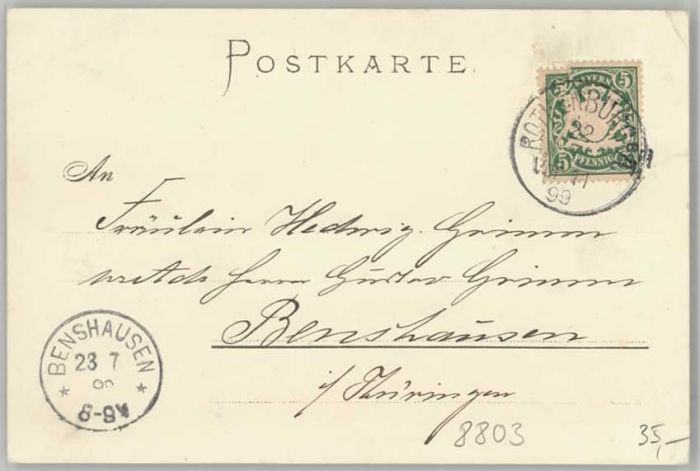 POSTKARTE
BAYERN
5 5
5 PFENNIG
ROTHENBURG
22
99
An
Fräulein Hedwig Grimm
Herrn Gustav Grimm
Benshausen
i/Thüringen
BENSHAUSEN
23 7
99
6-9N
8803
35,-